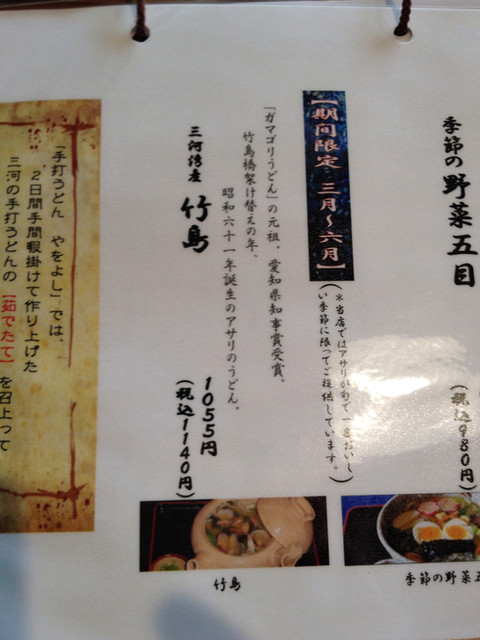 季節の野菜五目
(税込980円)
【期間限定 三月〜六月】
(※当店ではアサリが旬で一番おいし
い季節に限ってご提供しています。)
「ガマゴリうどん」の元祖。愛知県知事賞受賞。
竹島橋架け替えの年、
昭和六十一年誕生のアサリのうどん。
三河湾産 竹島
1055円
(税込1140円)
「手打うどん やをよし」では、
2日間手間暇掛けて作り上げた
三河の手打うどんの【茹でたて】を召上って
竹島
季節の野菜五